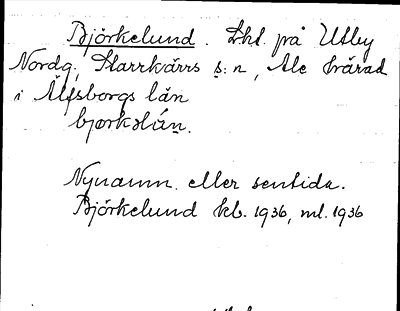 Björkelund. Lht. på Utby
Nordg; Starrkärrs s:n, Ale härad
i Älfsborgs län
Nynamn eller sentida.
Björkelund kb. 1936, ml. 1936